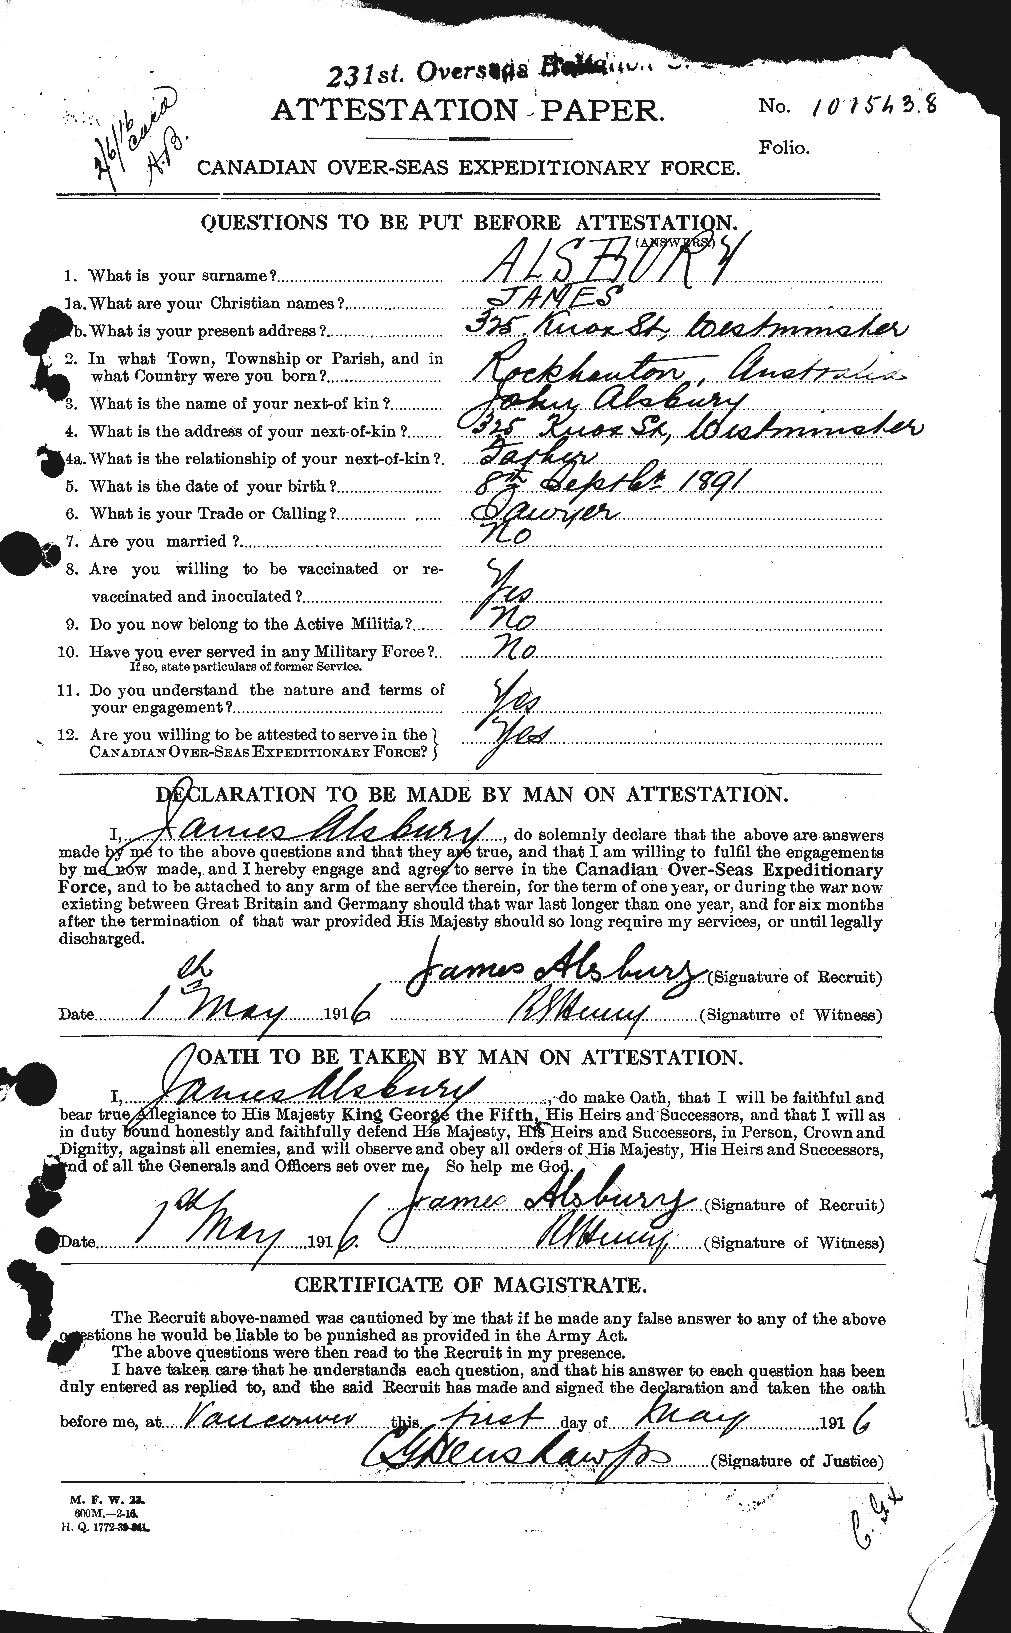 231st. Overseas Battalion
ATTESTATION PAPER.
No. 1015438
Folio.
2/6/16
A.B.
CANADIAN OVER-SEAS EXPEDITIONARY FORCE.
QUESTIONS TO BE PUT BEFORE ATTESTATION.
(ANSWERS)
1. What is your surname? ALSBURY
1a. What are your Christian names? JAMES
1b. What is your present address? 325 Knox St, Westminster
2. In what Town, Township or Parish, and in
what Country were you born? Rockhanton, Australia
3. What is the name of your next-of kin? John Alsbury
4. What is the address of your next-of-kin? 325 Knox St, Westminster
4a. What is the relationship of your next-of-kin? Father
5. What is the date of your birth? 8th Septbr 1891
6. What is your Trade or Calling? Sawyer
7. Are you married? No
8. Are you willing to be vaccinated or re-
vaccinated and inoculated? Yes
9. Do you now belong to the Active Militia? No
10. Have you ever served in any Military Force? No
If so, state particulars of former Service.
11. Do you understand the nature and terms of
your engagement? Yes
12. Are you willing to be attested to serve in the
CANADIAN OVER-SEAS EXPEDITIONARY FORCE? Yes
DECLARATION TO BE MADE BY MAN ON ATTESTATION.
I, James Alsbury, do solemnly declare that the above are answers
made by me to the above questions and that they are true, and that I am willing to fulfil the engagements
by me now made, and I hereby engage and agree to serve in the Canadian Over-Seas Expeditionary
Force, and to be attached to any arm of the service therein, for the term of one year, or during the war now
existing between Great Britain and Germany should that war last longer than one year, and for six months
after the termination of that war provided His Majesty should so long require my services, or until legally
discharged.
James Alsbury (Signature of Recruit)
Date 1th May 1916 (Signature of Witness)
OATH TO BE TAKEN BY MAN ON ATTESTATION.
I, James Alsbury, do make Oath, that I will be faithful and
bear true Allegiance to His Majesty King George the Fifth, His Heirs and Successors, and that I will as
in duty bound honestly and faithfully defend His Majesty, His Heirs and Successors, in Person, Crown and
Dignity, against all enemies, and will observe and obey all orders of His Majesty, His Heirs and Successors,
and of all the Generals and Officers set over me. So help me God.
James Alsbury (Signature of Recruit)
Date 1th May 1916. (Signature of Witness)
CERTIFICATE OF MAGISTRATE.
The Recruit above-named was cautioned by me that if he made any false answer to any of the above
questions he would be liable to be punished as provided in the Army Act.
The above questions were then read to the Recruit in my presence.
I have taken care that he understands each question, and that his answer to each question has been
duly entered as replied to, and the said Recruit has made and signed the declaration and taken the oath
before me, at Vancouver this first day of May 1916
(Signature of Justice)
M. F. W. 23.
600M.—2-16.
H. Q. 1772-39-841.